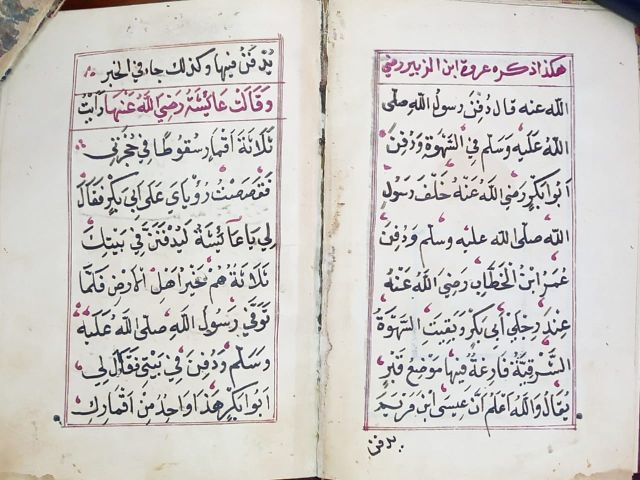 هكذا ذكره عروة ابن الزبير رضي
الله عنه قال دُفِنَ رسول الله صلى
الله عليه وسلم في السَّهْوَةِ وَدُفِنَ
أبو بكر رضي الله عنه خلف رسول
الله صلى الله عليه وسلم ودفن
عمر ابن الخطاب رضي الله عنه
عند رجلي أبي بكر وبقيت السهوة
الشرقية فارغة فيها موضع قبر
يقال والله أعلم أن عيسى ابن مريم
يدفن
يُدْفَنُ فيها وكذلك جاء في الخبر
وقالت عائشة رضي الله عنها رأيت
ثلاثة أقمار سقوطا في حجرتي
فقصصت رؤياي على أبي بكر فقال
لي يا عائشة ليدفنن في بيتك
ثلاثة هم خير أهل الأرض فلما
توفي رسول الله صلى الله عليه
وسلم ودفن في بيتي فقال لي
أبو بكر هذا واحد من أقمارك